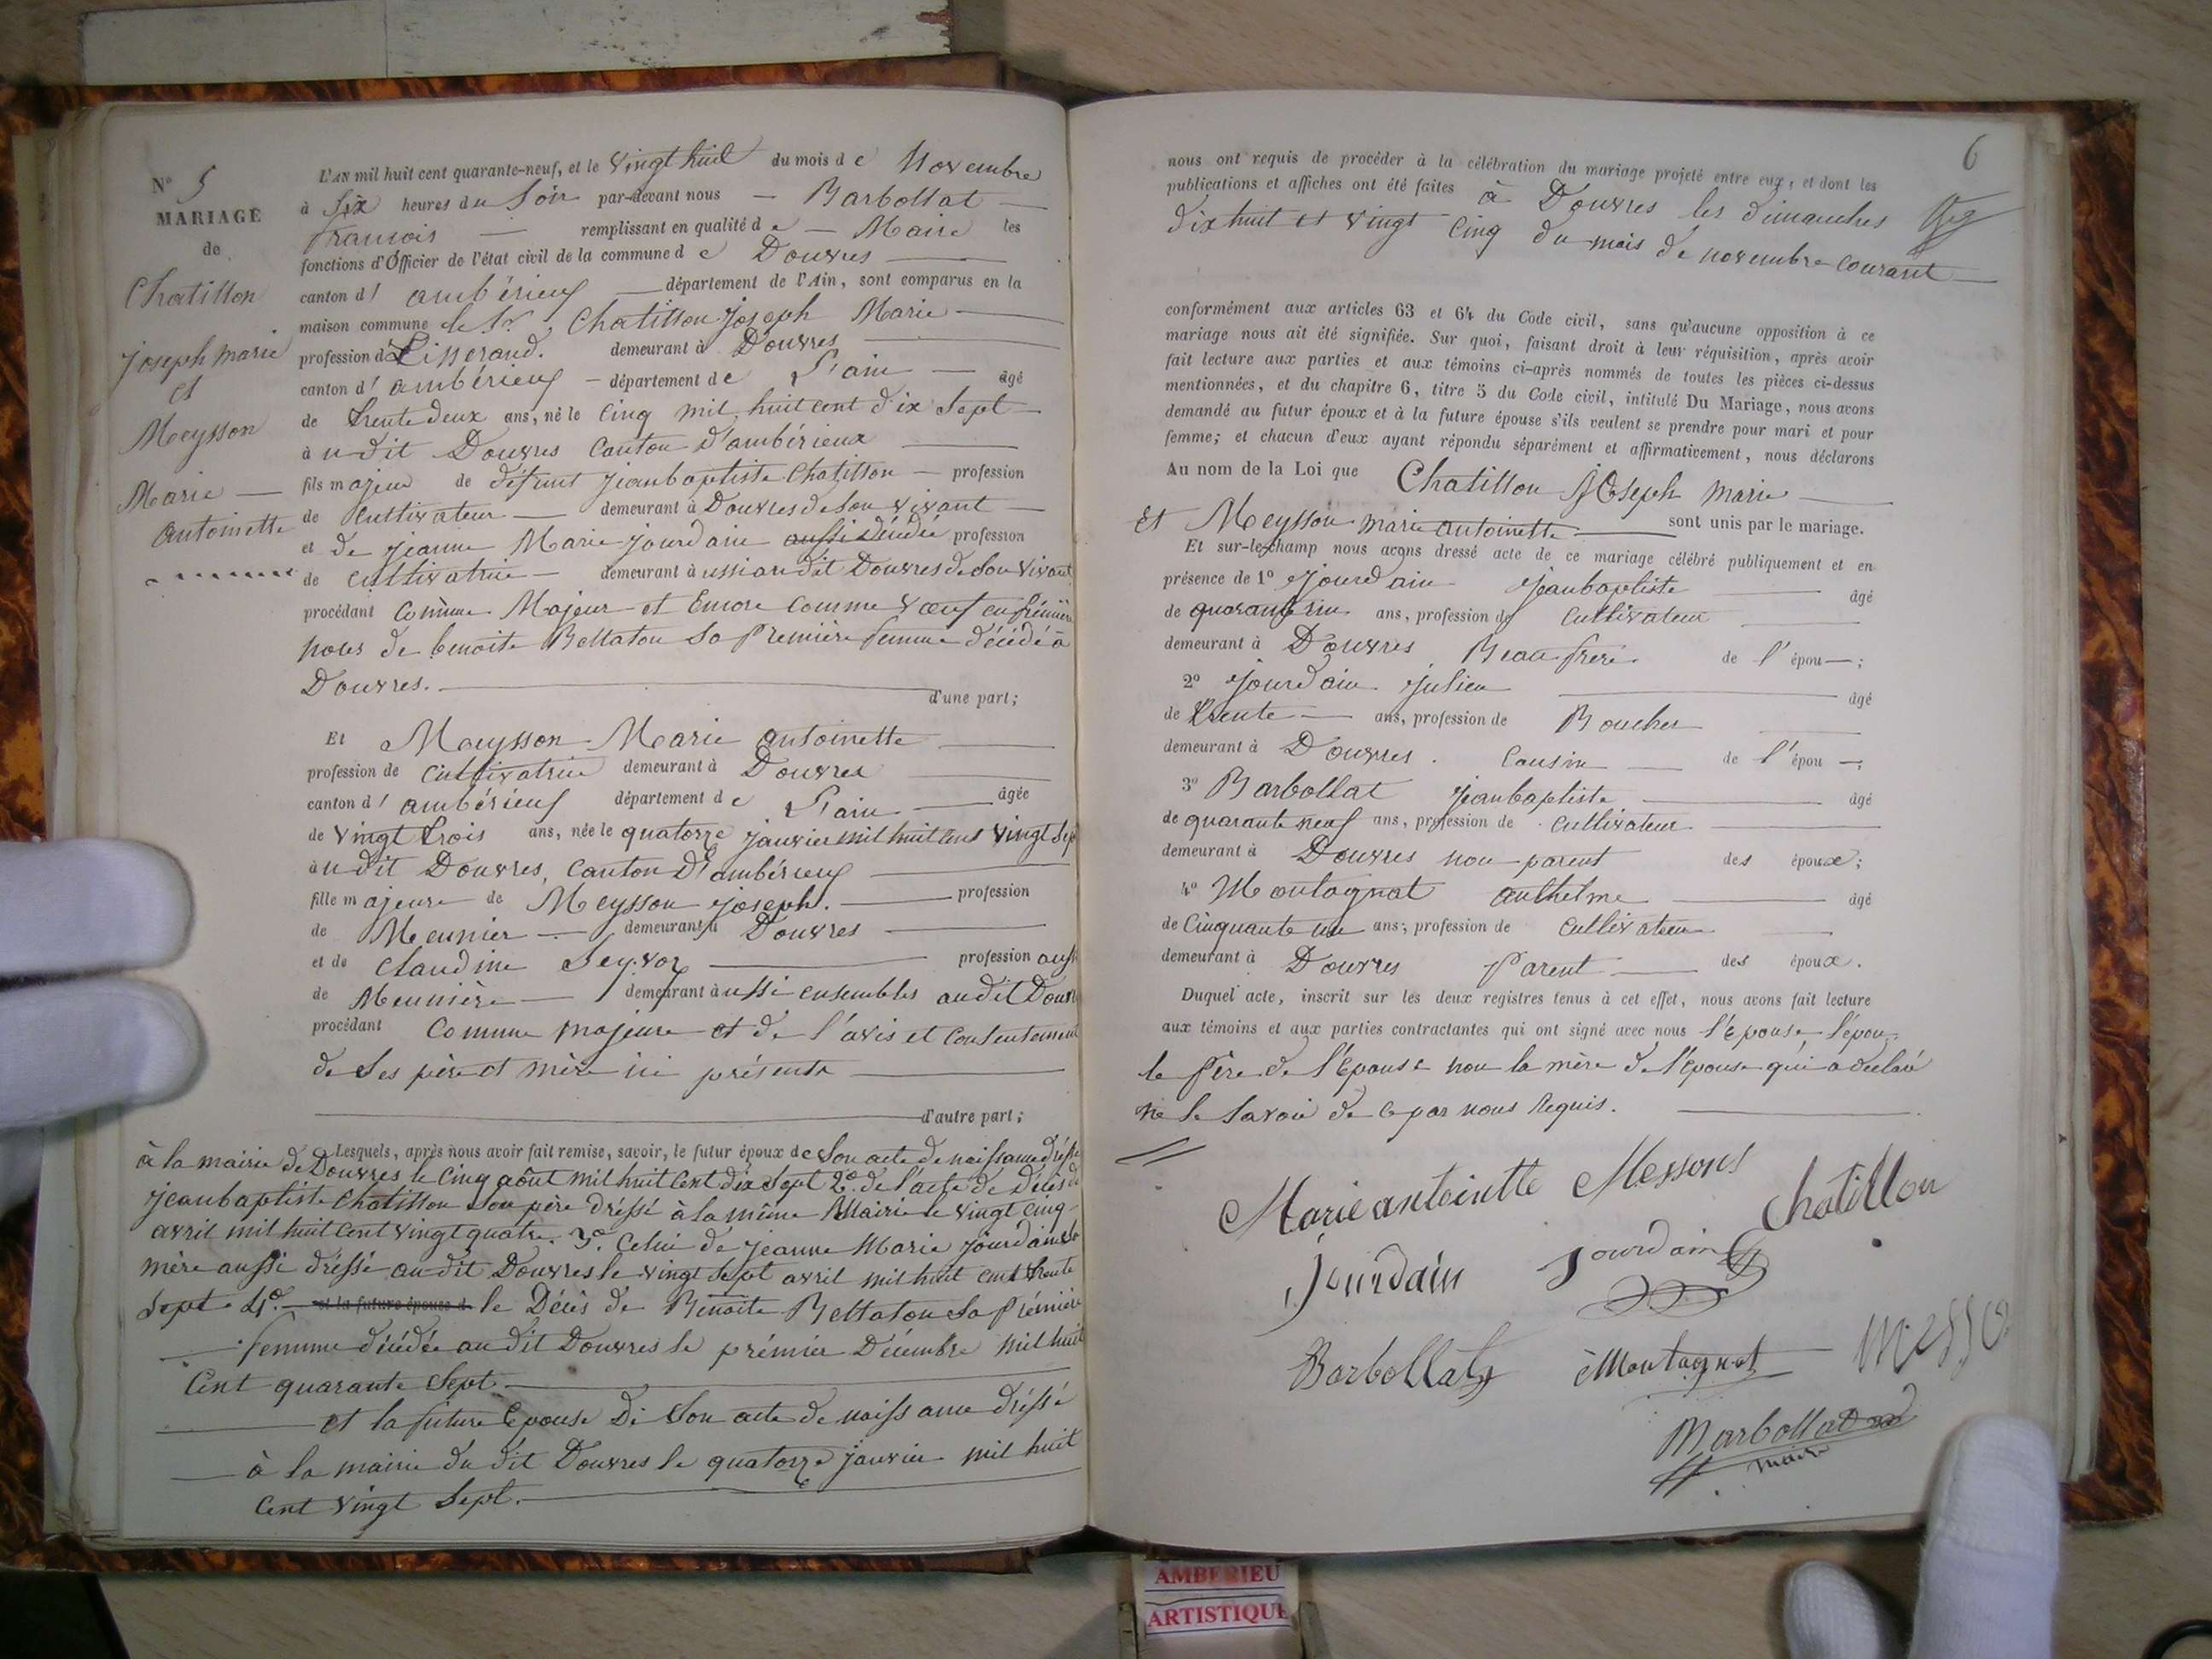 N° 5
MARIAGE
de
Chatillon
joseph marie
et
Meysson
Marie
antoinette
L'AN mil huit cent quarante-neuf, et le Vingt huit du mois de Novembre
à Six heures du Soir par-devant nous Barbollat
francois remplissant en qualité de Maire les
fonctions d'Officier de l'état civil de la commune de Douvres
canton d' ambérieux département de l'Ain, sont comparus en la
maison commune le Sr Chatillon joseph Marie
profession de Tisserand. demeurant à Douvres
canton d' ambérieux département de L'ain âgé
de trente deux ans, né le Cinq mil huit cent dix Sept
à udit Douvres Canton D'ambérieux
fils majeur de défunt jeanbaptiste Chatillon profession
de Cultivateur demeurant à Douvres de Son vivant
et de jeanne Marie jourdain aussi décédée profession
de Cultivatrice demeurant à ussi audit Douvres de Son vivant
procédant Comme Majeur et Encore Comme Veuf en prémière
noces de benoite Bettaton Sa Première femme décédé à
Douvres. d'une part;
Et Meysson Marie antoinette
profession de Cultivatrice demeurant à Douvres
canton d' ambérieux département de L'ain âgée
de Vingt trois ans, née le quatorze janvier mil huit cent vingt Sept
à udit Douvres, Canton D'ambérieux
fille majeure de Meysson joseph. profession
de Meunier demeurant à Douvres
et de Claudine Seyvoz profession aussi
de Meunière demeurant à ussi ensembles audit Douvres
procédant Comme majeure et de l'avis et Consentement
de Ses père et mère ici présents
d'autre part;
Lesquels, après nous avoir fait remise, savoir, le futur époux de Son acte de naissance dréssé
à la mairie de Douvres le Cinq août mil huit Cent dix Sept 2°. de l'acte de Décès de
jeanbaptiste Chatillon Son père dréssé à la même Mairie le vingt Cinq
avril mil huit Cent vingt quatre. 3°. Celui de jeanne Marie jourdain Sa
mère aussi dréssé audit Douvres le vingt Sept avril mil huit cent trente
Sept 4°. et la future épouse d le Décès de Benoite Bettaton Sa Prémière
femme décédée audit Douvres le prémier Décémbre mil huit
Cent quarante Sept
et la future Epouse De Son acte de naissance dréssé
à la mairie du dit Douvres le quatorze janvier mil huit
Cent vingt Sept.
6
nous ont requis de procéder à la célébration du mariage projeté entre eux, et dont les
publications et affiches ont été faites à Douvres les dimanches
dix huit et vingt Cinq du mois de novembre Courant
conformément aux articles 63 et 64 du Code civil, sans qu'aucune opposition à ce
mariage nous ait été signifiée. Sur quoi, faisant droit à leur réquisition, après avoir
fait lecture aux parties et aux témoins ci-après nommés de toutes les pièces ci-dessus
mentionnées, et du chapitre 6, titre 5 du Code civil, intitulé Du Mariage, nous avons
demandé au futur époux et à la future épouse s'ils veulent se prendre pour mari et pour
femme; et chacun d'eux ayant répondu séparément et affirmativement, nous déclarons
Au nom de la Loi que Chatillon Joseph Marie
Et Meysson marie antoinette sont unis par le mariage.
Et sur-le-champ nous avons dressé acte de ce mariage célébré publiquement et en
présence de 1° jourdain jeanbaptiste âgé
de quarante un ans, profession de Cultivateur
demeurant à Douvres Beau frere de l' épou ;
2° jourdain julien âgé
de trente ans, profession de Boucher
demeurant à Douvres. Cousin de l' épou ;
3° Barbollat jeanbaptiste âgé
de quarante neuf ans, profession de Cultivateur
demeurant à Douvres non parent des époux;
4° Montagnat anthelme âgé
de Cinquante un ans; profession de Cultivateur
demeurant à Douvres Parent des époux.
Duquel acte, inscrit sur les deux registres tenus à cet effet, nous avons fait lecture
aux témoins et aux parties contractantes qui ont signé avec nous l'épouse, l'époux
le Père de l'Epouse non la mère de l'épouse qui a déclaré
ne le Savoir de Ce par nous Requis.
Marie antoinette Messons
Chatillon
Jourdain
Jourdain
Barbollat
Montagnat
messo
Barbollat
maire
AMBERIEU
ARTISTIQUE